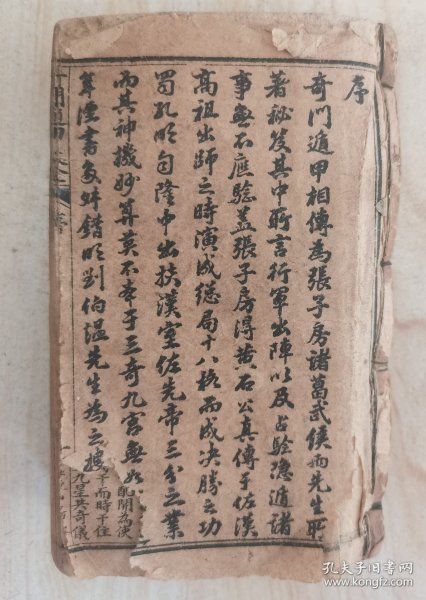 序
奇門遁甲相傳為張子房諸葛武侯兩先生所
著秘笈其中所言行軍出陣以及占驗隱遁諸
事無不應驗蓋張子房得黃石公真傳于佐漢
高祖出師之時演成總局十八務而成決勝之功
蜀孔明自隆中出扶漢室佐先帝三分之業
而其神機妙算莫不本于三奇九宮無如
年湮書多舛錯明劉伯溫先生為之
干而時干住
九星共奇儀
配開為使
孔夫子旧书网
www.kongfz.com